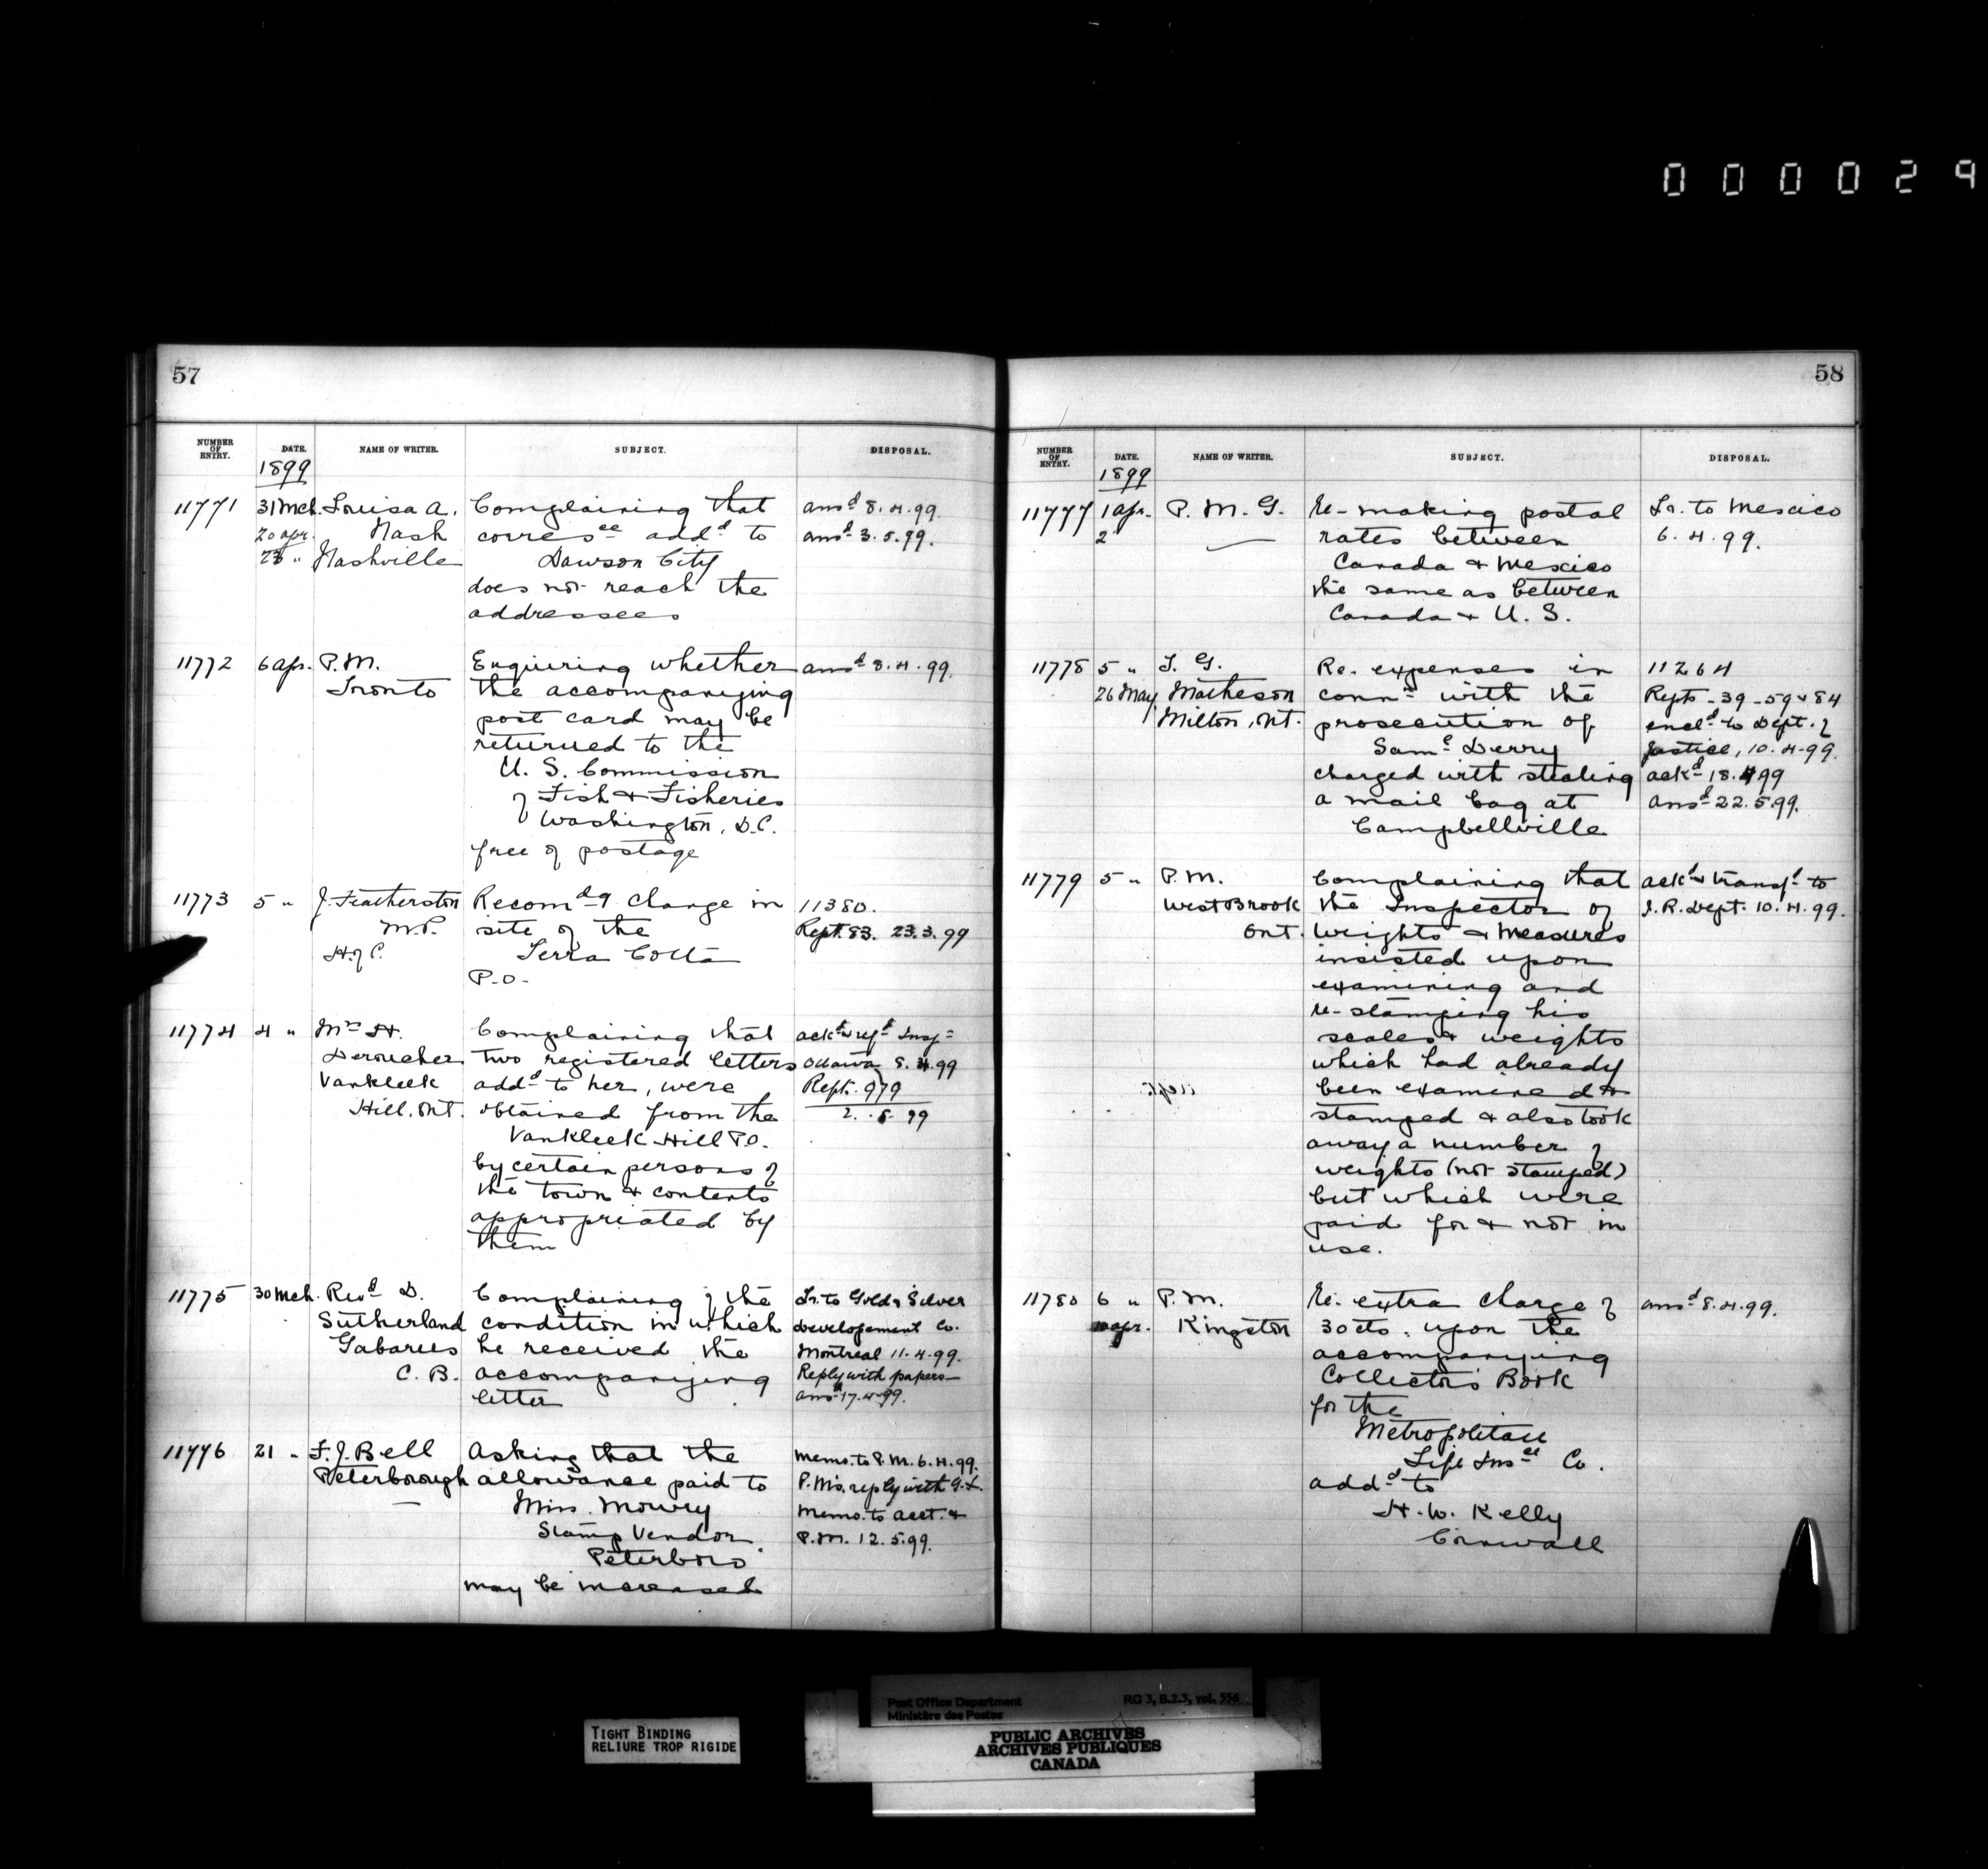 000029
57
NUMBER OF ENTRY. DATE. NAME OF WRITER. SUBJECT. DISPOSAL.
1899
11771 31 Mch. Louisa A. Complaining that ansd 8.4.99.
20 apr. Nash corresce addd to ansd 3.5.99.
23 " Nashville Dawson City
does not reach the
addressees
11772 6 apr. P.M. Enquiring whether ansd 8.4.99.
Toronto the accompanying
post card may be
returned to the
U. S. Commission
of Fish & Fisheries
Washington, D.C.
free of postage
11773 5 " J. Featherston Recomdg change in 11380.
M.P. site of the Rept. 83. 23.3.99
H. of C. Terra Cotta
P.O.
11774 4 " Mrs H. Complaining that ackd & refd Insp
Deroucher two registered letters Ottawa 8.4.99
Vankleek addd to her, were Rept. 979
Hill, Ont. obtained from the 2.5.99
Vankleek Hill P.O.
by certain persons of
the town & contents
appropriated by
them
11775 30 Mch. Revd D. Complaining of the Lr. to Gold & Silver
Sutherland condition in which Developement Co.
Gabarus he received the Montreal 11.4.99.
C. B. accompanying Reply with papers
letter ansd 17.4.99.
11776 21 " F. J. Bell Asking that the Memo. to P.M. 6.4.99.
Peterborough allowance paid to P.M's. reply with G.L.
Miss. Mowry Memo. to Acct. &
Stamp Vendor P.M. 12.5.99.
Peterboro
may be increased
58
NUMBER OF ENTRY. DATE. NAME OF WRITER. SUBJECT. DISPOSAL.
1899
11777 1 apr. P. M. G. Re-making postal Lr. to Mexico
2 rates between 6.4.99.
Canada & Mexico
the same as between
Canada & U. S.
11778 5 " T. G. Re. expenses in 11264
26 May. Matheson conn with the Repts - 39 - 59 & 84
Milton, Ont. prosecution of encld to Dept. of
Saml Derry Justice, 10.4.99.
charged with stealing ackd 18.4.99
a mail bag at ansd 22.5.99.
Campbellville
11779 5 " P.M. Complaining that ackd & transfd to
Westbrook the Inspector of I.R. Dept. 10.4.99.
Ont. Weights & Measures
insisted upon
examining and
re-stamping his
scales & weights
which had already
been examined &
stamped & also took
away a number of
weights (not stamped)
but which were
paid for & not in
use.
11780 6 " P.M. Re. extra charge of ansd 8.4.99.
10 apr. Kingston 30 cts. upon the
accompanying
Collectors Book
for the
Metropolitan
Life Insce Co.
addd to
H. W. Kelly
Cornwall
TIGHT BINDING
RELIURE TROP RIGIDE
Post Office Department RG 3, B.2.3, vol. 556
Ministère des Postes
PUBLIC ARCHIVES
ARCHIVES PUBLIQUES
CANADA